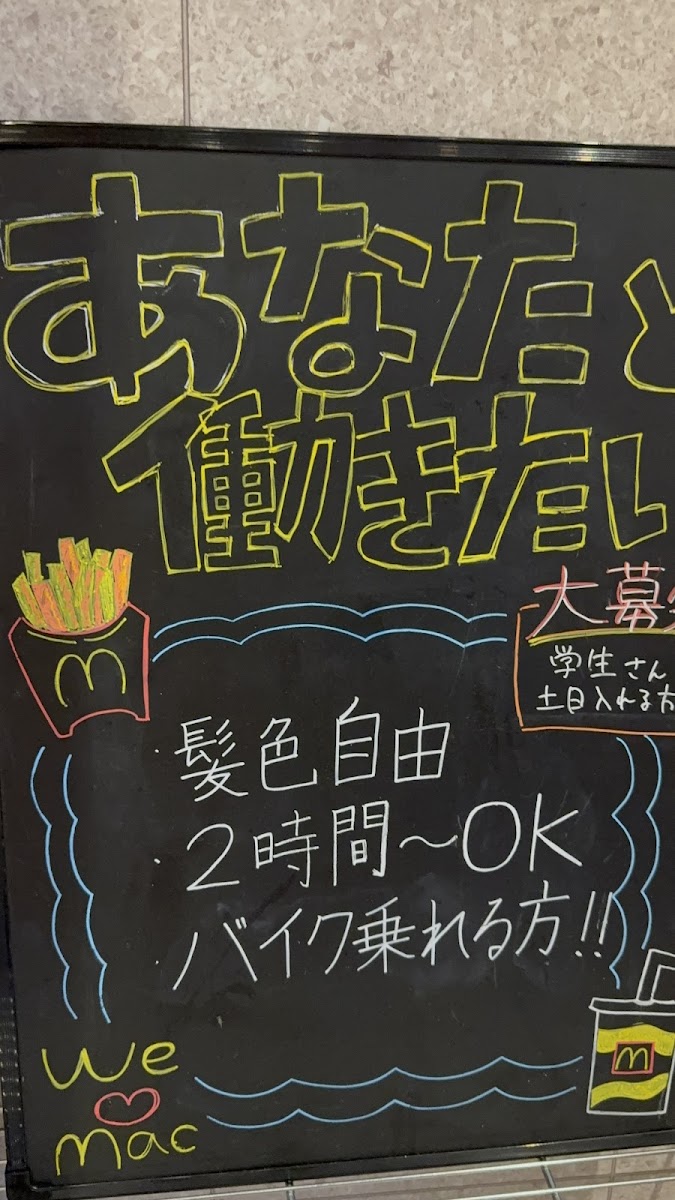 あなたと
働きたい
大募
学生さん
土日入れる方
・髪色自由
・2時間～OK
バイク乗れる方!!
We
♡
mac
m
m